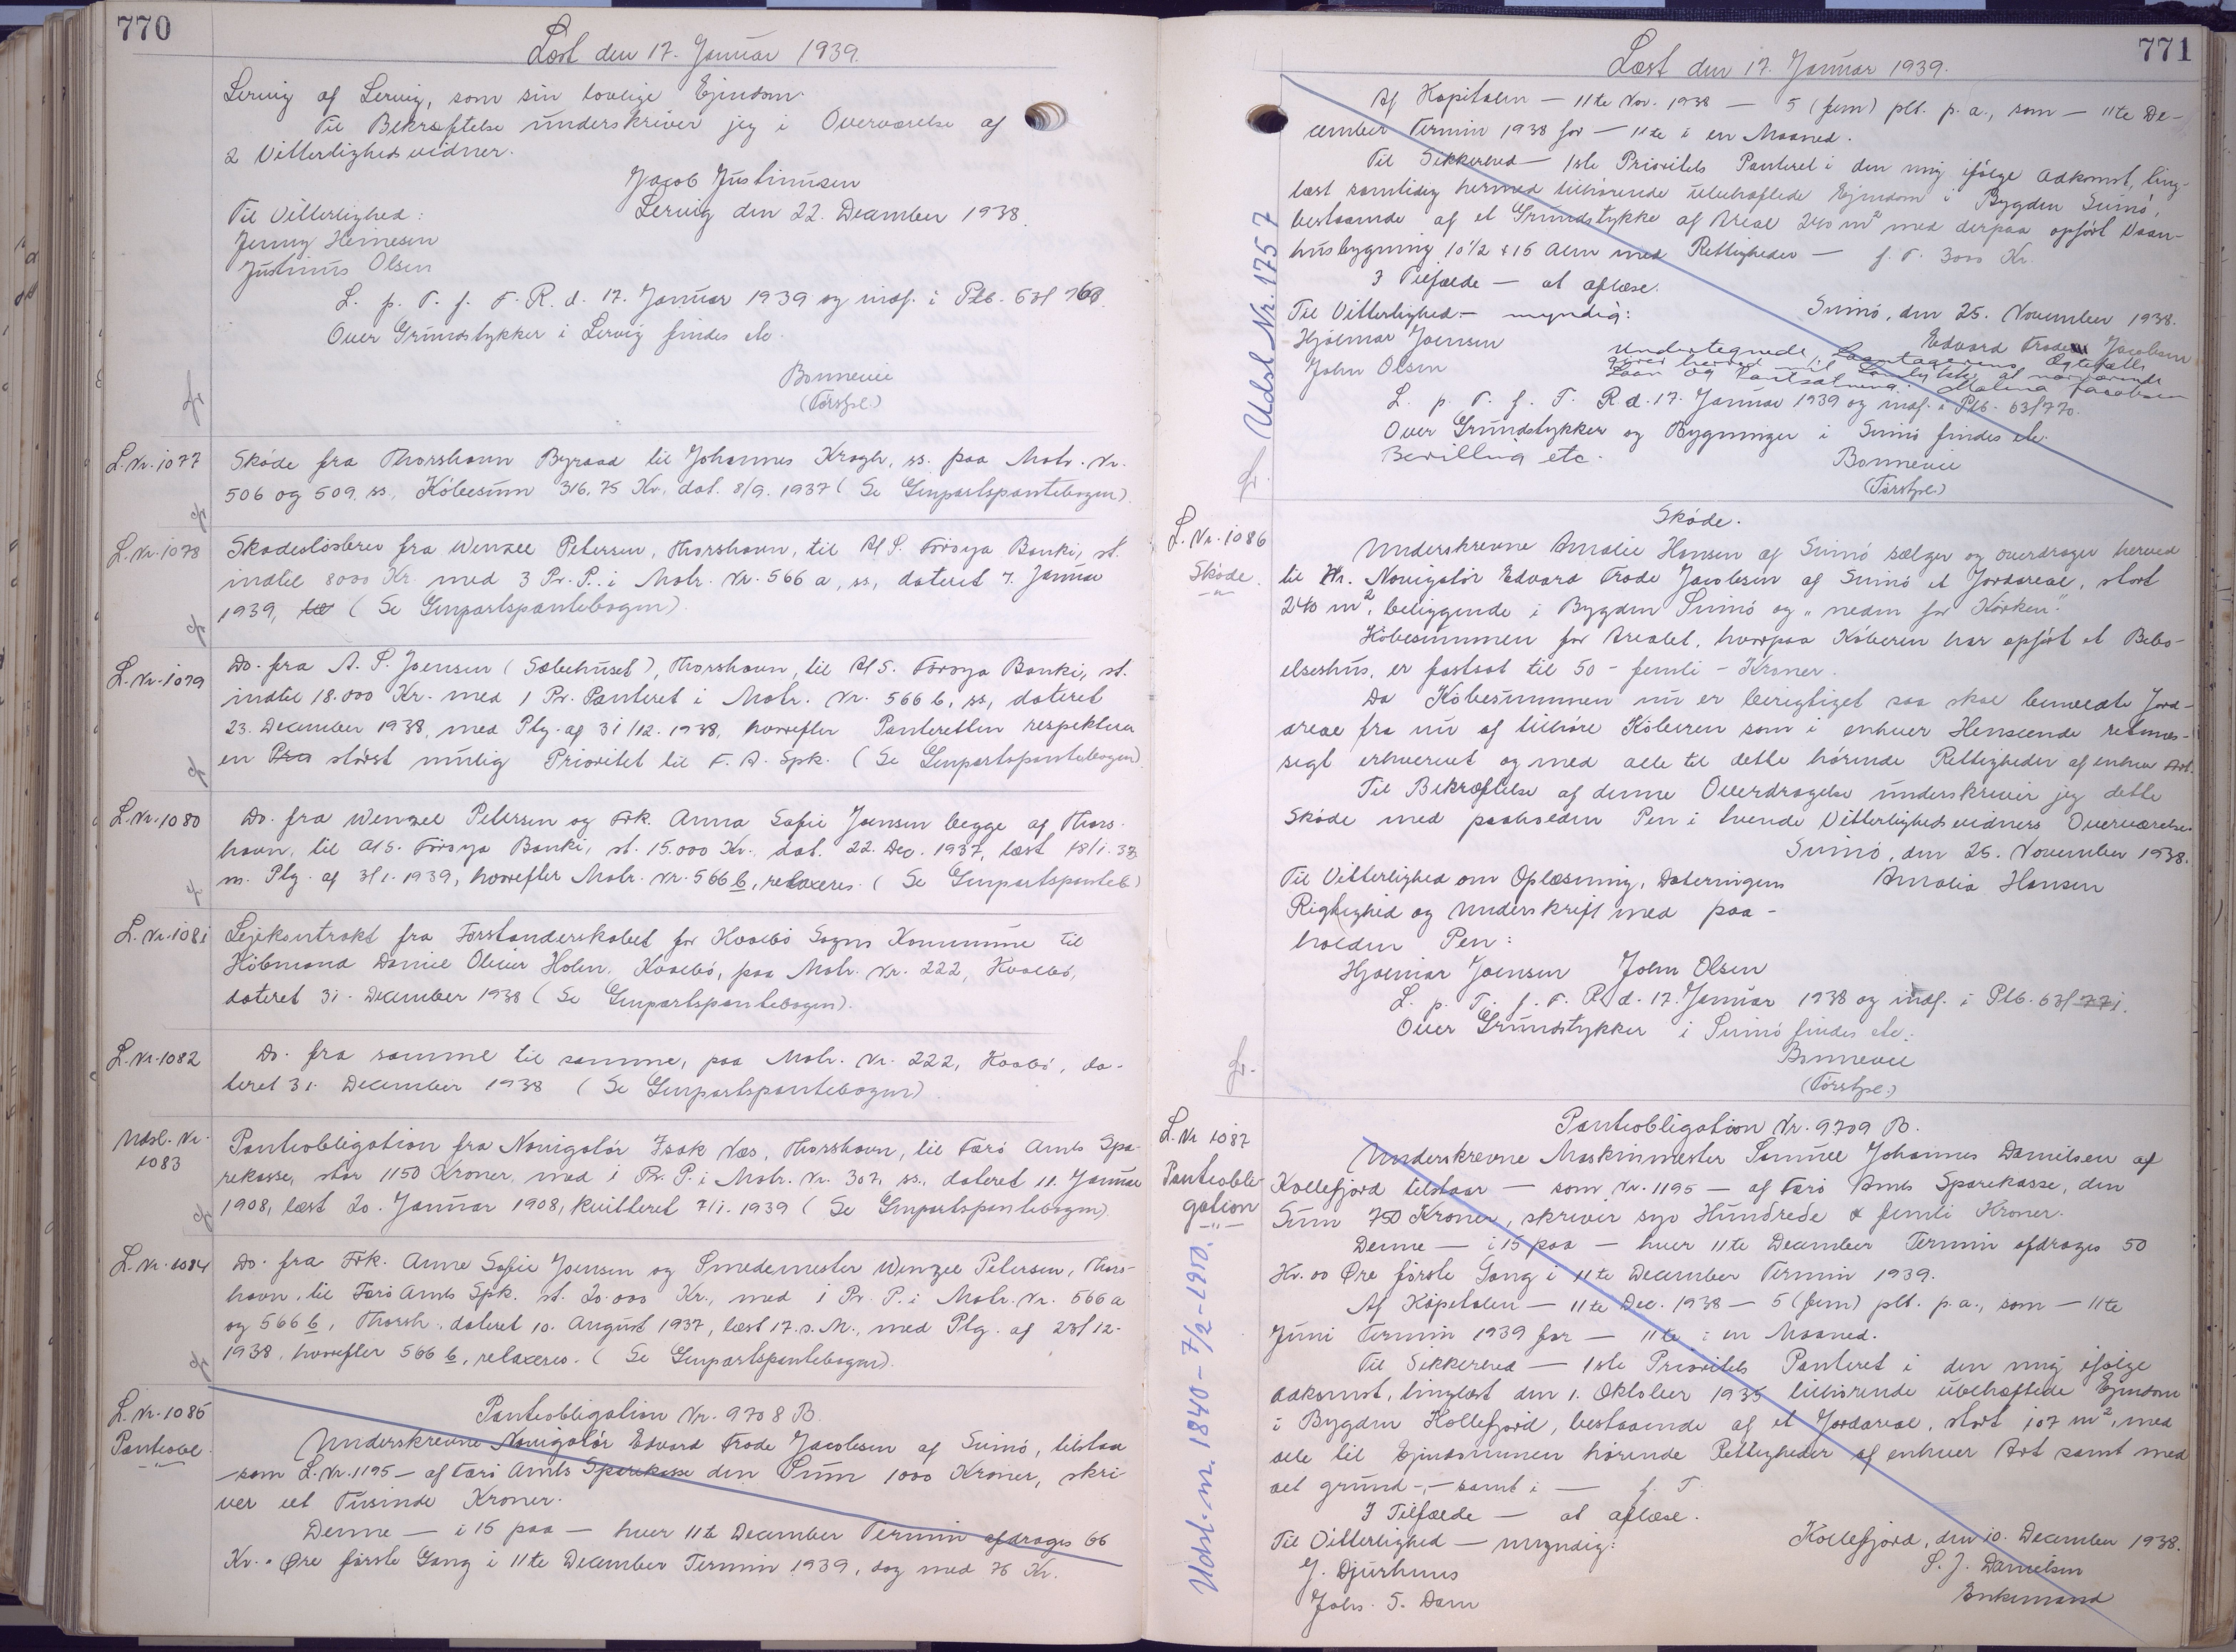 770
Læst den 17. Januar 1939.
Lervig af Lervig, som sin lovlige Ejendom.
Til Bekræftelse underskriver jeg i Overværelse af
2 Vitterlighedsvidner.
Jacob Justinussen
Til Vitterlighed: Lervig den 22. December 1938.
Jenny Heinesen
Justinus Olsen
L. p. T. f. F. R. d. 17. Januar 1939 og indf. i Ptb. 63f 768.
Over Grundstykker i Lervig findes etc.
Bonnevie
(Törsfpl.)
L. Nr. 1077 Sköde fra Thorshavn Byraad til Johannes Krogh, ss. paa Matr. Nr.
506 og 509, ss, Köbesum 316,75 Kr, dat. 8/9. 1937 ( Se Genpartspantebogen).
L. Nr. 1078 Skadeslösbrev fra Wenzel Petersen, Thorshavn, til A/S. Föroya Banki, st.
indtil 8000 Kr. med 3 Pr. P. i Matr. Nr. 566 a, ss, dateret 7. Januar
1939, ( Se Genpartspantebogen).
L. Nr. 1079 Do. fra A. P. Joensen ( Sæbehuset), Thorshavn, til A/S. Föroya Banki, st.
indtil 18.000 Kr. med 1 Pr. Panteret i Matr. Nr. 566 b, ss, dateret
23. December 1938, med Ptg. af 31/12. 1938, hvorefter Panteretten respekterer
en störst mulig Prioritet til F. A. Spk. ( Se Genpartspantebogen)
L. Nr. 1080 Do. fra Wenzel Petersen og Frk. Anna Sofie Joensen begge af Thors-
havn, til A/S. Föroya Banki, st. 15.000 Kr., dat. 22. Dec. 1937, læst 18/1. 38
m. Ptg. af 3/1. 1939, hvorefter Matr. Nr. 566 b, relaxeres. ( Se Genpartspanteb)
L. Nr. 1081 Lejekontrakt fra Forstanderskabet for Hvalbö Sogns Kommune til
Köbmand Daniel Olivur Holm, Hvalbö, paa Matr. Nr. 222, Hvalbö,
dateret 31. December 1938 ( Se Genpartspantebogen).
L. Nr. 1082 Do. fra samme til samme, paa Matr. Nr. 222, Hvalbö, da-
teret 31. December 1938 ( Se Genpartspantebogen)
Udsl. Nr. 1083 Panteobligation fra Navigatör Isak Næs, Thorshavn, til Færö Amts Spa-
rekasse, stor 1150 Kroner, med 1 Pr. P. i Matr. Nr. 307, ss., dateret 11. Januar
1908, læst 20. Januar 1908, kvitteret 7/1. 1939 ( Se Genpartspantebogen)
L. Nr. 1084 Do. fra Frk. Anne Sofie Joensen og Smedemester Wenzel Petersen, Thors-
havn, til Færö Amts Spk. st. 20.000 Kr., med 1 Pr. P. i Matr. Nr. 566 a
og 566 b, Thorsh. dateret 10. August 1937, læst 17. s. M., med Ptg. af 23/12.
1938, hvorefter 566 b, relaxeres. ( Se Genpartspantebogen).
L. Nr. 1085 Panteobligation Nr. 9708 B.
Panteobl. Underskrevne Navigatör Edvard Frode Jacobsen af Sumö, tilstaa
— som L. Nr. 1195 — af Færö Amts Sparekasse den Sum 1000 Kroner, skri-
ver eet Tusinde Kroner.
Denne — i 15 paa — hver 11te December Termin afdrages 66
Kr. " Øre förste Gang i 11te December Termin 1939, dog med 76 Kr.
771
Læst den 17. Januar 1939.
Udsl Nr. 1757
Af Kapitalen — 11te Nov. 1938 — 5 (fem) pCt. p. a., som — 11te De-
cember Termin 1938 for — 11te i en Maaned.
Til Sikkerhed — 1ste Prioritets Panteret i den mig ifölge Adkomst, ting-
læst samtidig hermed tilhörende ubehæftede Ejendom i Bygden Sumö,
bestaaende af et Grundstykke af Areal 240 m² med derpaa opfört Vaan-
husbygning 10 1/2 x 16 Alen med Rettigheder — f. T. 3000 Kr.
I Tilfælde — at aflæse.
Til Vitterlighed — myndig: Sumö, den 25. November 1938.
Hjálmar Joensen Edvard Frode Jacobsen
John Olsen Undertegnede, Laantagerens Ægtefælle
giver herved mit Samtykke at nærværende
Laan og Pantsætning. Malena Jacobsen
L. p. T. f. F. R. d. 17. Januar 1939 og indf. i Ptb. 63f 770.
Over Grundstykker og Bygninger i Sumö findes etc.
Bevilling etc. Bonnevie
(Törsfpl.)
L. Nr. 1086
Sköde.
Sköde.
Underskrevne Amalie Hansen af Sumö sælger og overdrager herved
til Hr. Navigatör Edvard Frode Jacobsen af Sumö et Jordareal, stort
240 m², beliggende i Bygden Sumö og „ neden for Körken".
Köbesummen for Arealet, hvorpaa Köberen har opfört et Bebo-
elseshus, er fastsat til 50 - femti - Kroner.
Da Köbesummen nu er berigtiget saa skal bemeldte Jord-
areal fra nu af tilhöre Köberen som i enhver Henseende retmæs-
sigt erhvervet og med alle til dette hörende Rettigheder af enhver Art.
Til Bekræftelse af denne Overdragelse underskriver jeg dette
Sköde med paaholden Pen i tvende Vitterlighedsvidners Overværelse.
Sumö, den 25. November 1938.
Til Vitterlighed om Oplæsning, Dateringens Amalia Hansen
Rigtighed og Underskrift med paa-
holden Pen:
Hjalmar Joensen John Olsen
L. p. T. f. F. R. d. 17. Januar 1938 og indf. i Ptb. 63f 771.
Over Grundstykker i Sumö findes etc.
Bonnevie
(Törsfpl.)
L. Nr 1087
Panteobli-
gation
Udsl. nr. 1840 - 7/2 - 1950.
Panteobligation Nr. 9709 B.
Underskrevne Maskinmester Samuel Johannes Danielsen af
Kollefjord tilstaar — som Nr. 1195 — af Færö Amts Sparekasse, den
Sum 750 Kroner, skriver syv Hundrede & femti Kroner.
Denne — i 15 paa — hver 11te December Termin afdrages 50
Kr. 00 Øre förste Gang i 11te December Termin 1939.
Af Kapitalen — 11te Dec. 1938 — 5 (fem) pCt. p. a., som — 11te
Juni Termin 1939 for — 11te i en Maaned.
Til Sikkerhed — 1ste Prioritets Panteret i den mig ifölge
Adkomst, tinglæst den 1. Oktober 1935 tilhörende ubehæftede Ejendom
i Bygden Kollefjord, bestaaende af et Jordareal, stort 107 m², med
alle til Ejendommen hörende Rettigheder af enhver Art samt med
alt grund-, — samt i — f. T.
I Tilfælde — at aflæse.
Til Vitterlighed — myndig: Kollefjord, den 10. December 1938.
J. Djurhuus S. J. Danielsen
Johs. S. Dam Enkemand